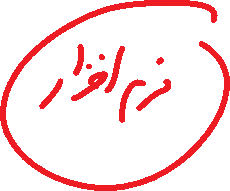 نرم افزار